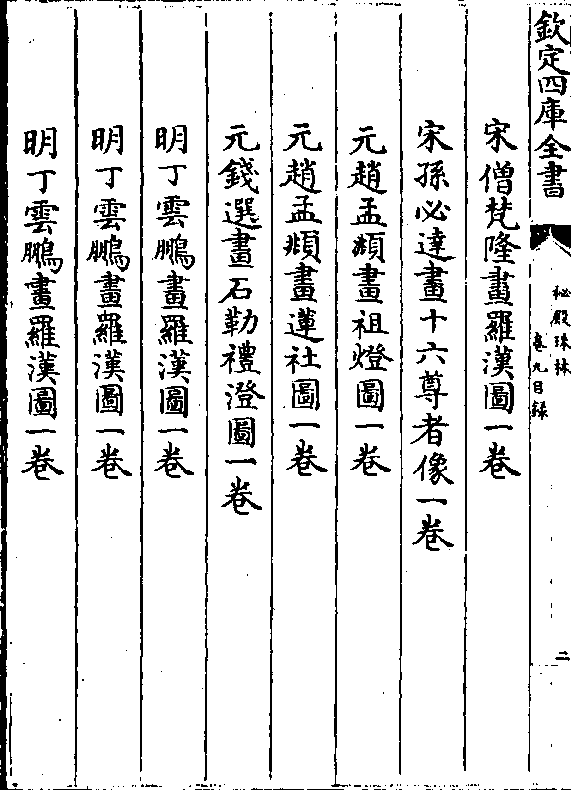 欽定四庫全書
秘殿珠林
卷九目錄
二
宋僧梵隆畫羅漢圖一卷
宋孫必達畫十六尊者像一卷
元趙孟頫畫祖燈圖一卷
元趙孟頫畫蓮社圖一卷
元錢選畫石勒禮澄圖一卷
明丁雲鵬畫羅漢圖一卷
明丁雲鵬畫羅漢圖一卷
明丁雲鵬畫羅漢圖一卷